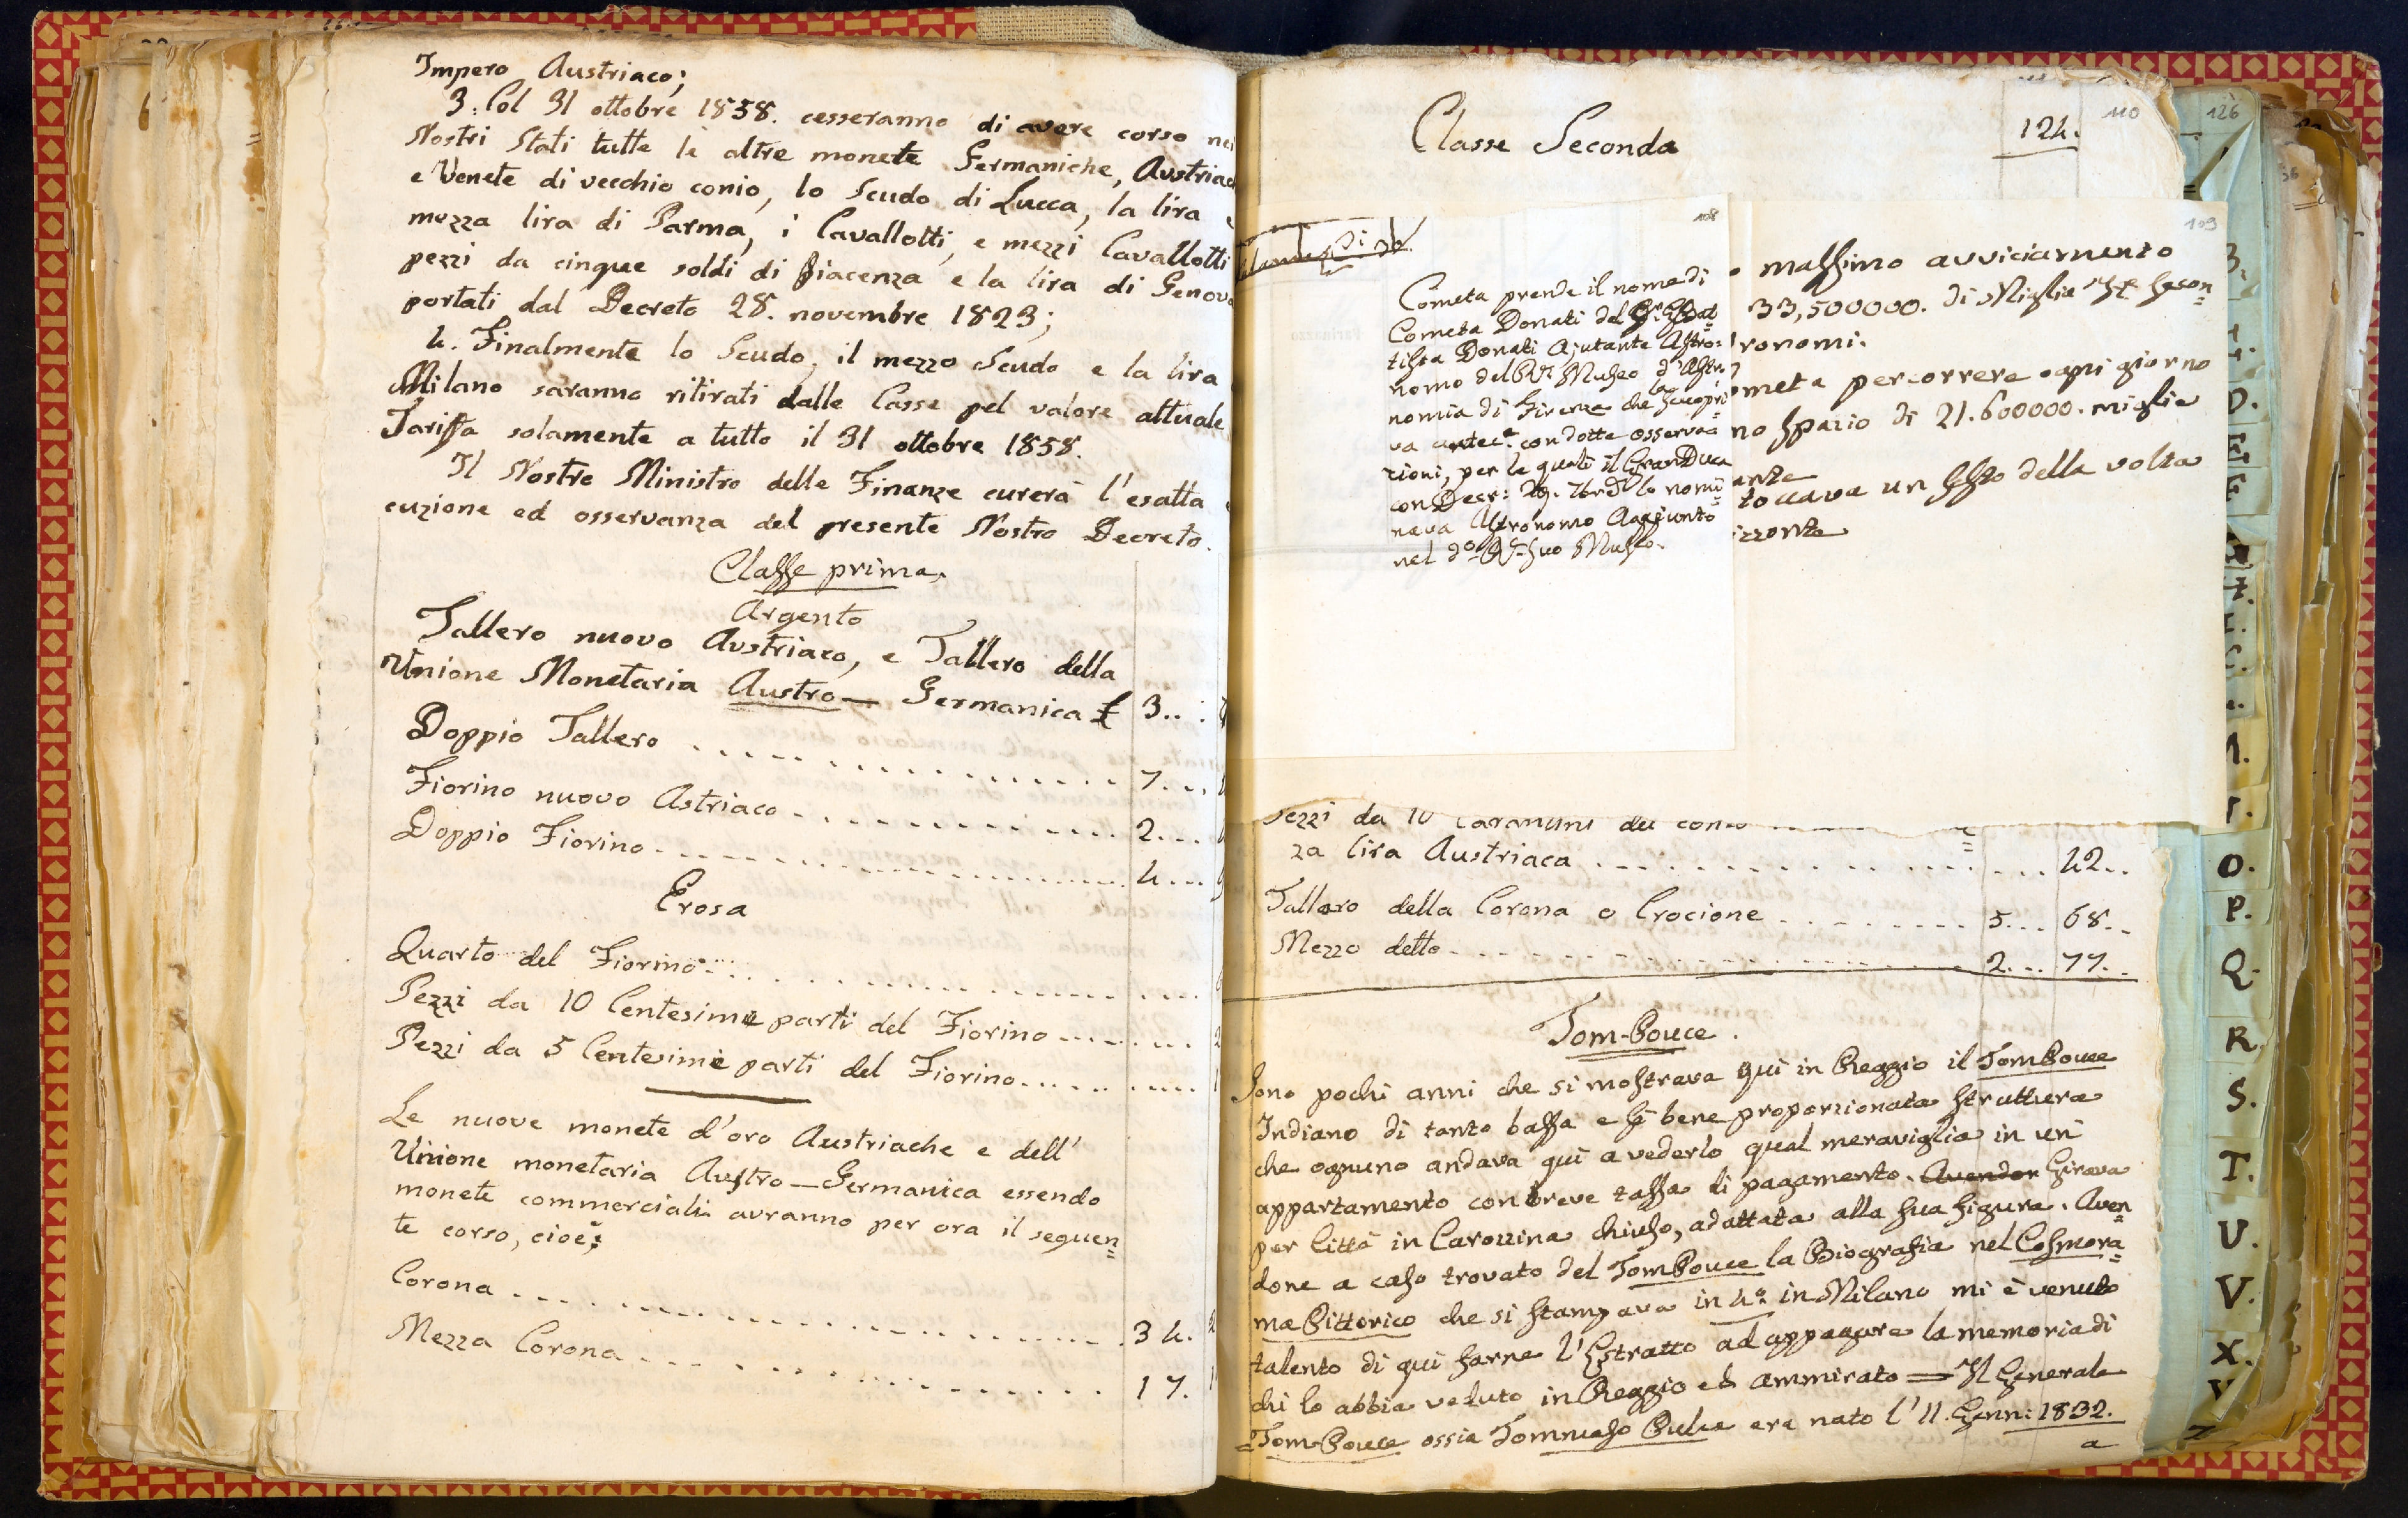 Impero Austriaco;
3. Col 31 ottobre 1858. cesseranno di avere corso nei
Nostri Stati tutte le altre monete Germaniche, Austriach
e Venete di vecchio conio, lo Scudo di Lucca, la lira
mezza lira di Parma, i Cavallotti, e mezzi Cavallotti
pezzi da cinque soldi di Piacenza e la lira di Genova
portati dal Decreto 28. novembre 1823;
4. Finalmente lo Scudo, il mezzo Scudo e la lira
Milano saranno ritirati dalle Casse pel valore attuale
Tariffa solamente a tutto il 31 ottobre 1858.
Il Nostro Ministro delle Finanze curerà l'esatta
cuzione ed osservanza del presente Nostro Decreto.
Classe prima.
Argento
Tallero nuovo Austriaco, e Tallero della
Unione Monetaria Austro— Germanica £ 3..
Doppio Tallero . . . . . . 7...
Fiorino nuovo Astriaco . . . . . . 2...
Doppio Fiorino . . . . . . 4...
Erosa
Quarto del Fiorino . . . . . .
Pezzi da 10 Centesime parti del Fiorino . . . . . . 2
Pezzi da 5 Centesime parti del Fiorino . . . . . . 1
Le nuove monete d'oro Austriache e dell'
Unione monetaria Austro—Germanica essendo
monete commerciali avranno per ora il seguen=
te corso, cioè:
Corona . . . . . . 34.
Mezza Corona . . . . . . 17.
Classe Seconda
124.
110
126
108
Cometa prende il nome di
Cometa Donati dal Gio: Bat=
tista Donati Ajutante Astro=
nomo del R. Museo d'Astro
nomia di Firenze che la scopri
va antec.e condotte osserva=
zioni, per le quali il GranDuca
con Decr: 29. 7bre lo nomi=
nava Astronomo Aggiunto
nel do. R. suo Museo.
109
massimo avviciamento
33,500000. di Miglia
ronomi.
ometa percorrere ogni giorno
no spazio di 21.600000. miglia
ante
toccava un sesto della volta
izzonte
Pezzi da 10 Carantani
za lira Austriaca . . . . . . 42..
Tallero della Corona o Crocione . . . . . . 5... 68..
Mezzo detto . . . . . . 2... 77..
Tom-Pouce.
Sono pochi anni che si mostrava qui in Reggio il Tom Pouce
Indiano di tanto bassa e sì bene proporzionata struttura
che ognuno andava qui a vederlo qual meraviglia in un
appartamento con breve tassa di pagamento. Avendon Girava
per Città in Carozzina chiuso, adattata alla sua figura. Aven=
done a caso trovato del Tom Pouce la Biografia nel Cosmora=
ma Pittorico che si stampava in 4o. in Milano mi è venuto
talento di qui farne l'Estratto ad appagare la memoria di
chi lo abbia veduto in Reggio ed ammirato = Il Generale
=Tom-Pouce ossia Tommaso Pulce era nato l'11. Genn: 1832.
a
B.
D.
O.
P.
Q.
R.
S.
T.
U.
V.
X.
Y
Z